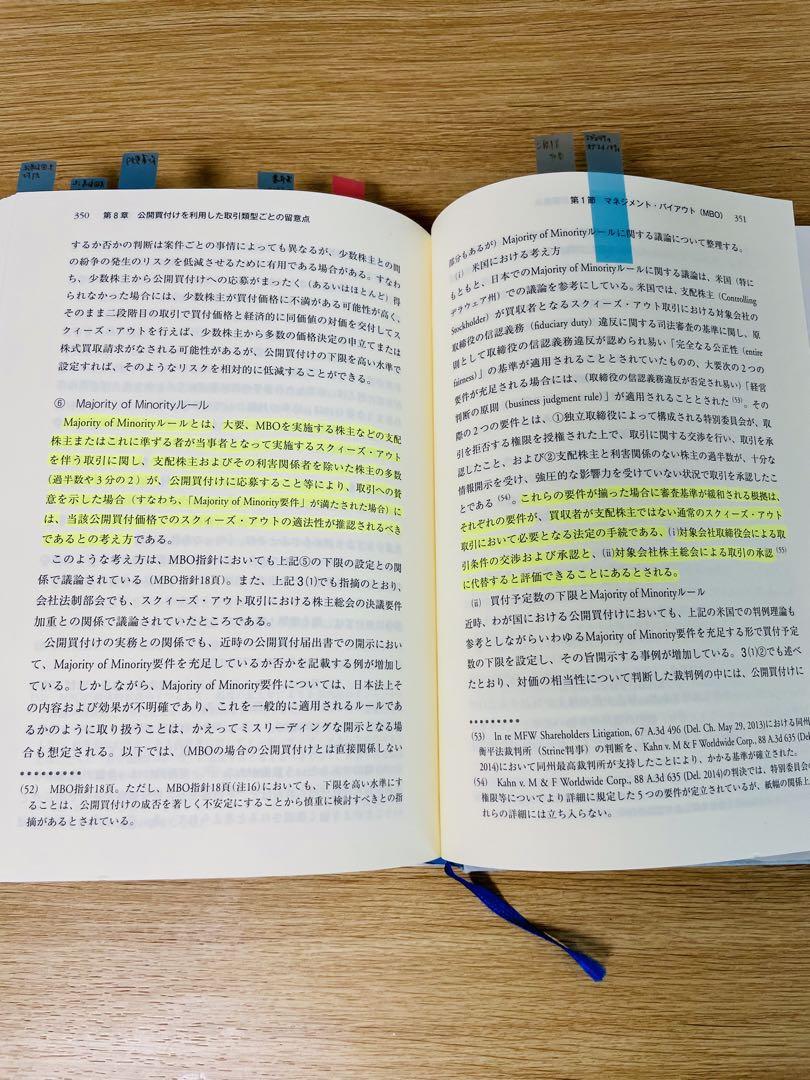 350　第8章　公開買付けを利用した取引類型ごとの留意点
するか否かの判断は案件ごとの事情によっても異なるが、少数株主との間
の紛争の発生のリスクを低減させるために有用である場合がある。すなわ
ち、少数株主から公開買付けへの応募がまったく（あるいはほとんど）得
られなかった場合には、少数株主が買付価格に不満がある可能性が高く、
そのまま二段階目の取引で買付価格と経済的に同価値の対価を交付してス
クィーズ・アウトを行えば、少数株主から多数の価格決定の申立てまたは
株式買取請求がなされる可能性があるが、公開買付けの下限を高い水準で
設定すれば、そのようなリスクを相対的に低減することができる。
⑥　Majority of Minorityルール
Majority of Minorityルールとは、大要、MBOを実施する株主などの支配
株主またはこれに準ずる者が当事者となって実施するスクィーズ・アウト
を伴う取引に関し、支配株主およびその利害関係者を除いた株主の多数
（過半数や3分の2）が、公開買付けに応募すること等により、取引への賛
意を示した場合（すなわち、「Majority of Minority要件」が満たされた場合）に
は、当該公開買付価格でのスクィーズ・アウトの適法性が推認されるべき
であるとの考え方である。
このような考え方は、MBO指針においても上記⑤の下限の設定との関
係で議論されている（MBO指針18頁）。また、上記3(1)でも指摘のとおり、
会社法制部会でも、スクィーズ・アウト取引における株主総会の決議要件
加重との関係で議論されていたところである。
公開買付けの実務との関係でも、近時の公開買付届出書での開示におい
て、Majority of Minority要件を充足しているか否かを記載する例が増加し
ている。しかしながら、Majority of Minority要件については、日本法上そ
の内容および効果が不明確であり、これを一般的に適用されるルールであ
るかのように取り扱うことは、かえってミスリーディングな開示となる場
合も想定される。以下では、（MBOの場合の公開買付けとは直接関係しない
(52)　MBO指針18頁。ただし、MBO指針18頁（注16）においても、下限を高い水準にす
ることは、公開買付けの成否を著しく不安定にすることから慎重に検討すべきとの指
摘があるとされている。
第1節　マネジメント・バイアウト（MBO）　351
部分もあるが）Majority of Minorityルールに関する議論について整理する。
(ⅰ)　米国における考え方
もともと、日本でのMajority of Minorityルールに関する議論は、米国（特に
デラウェア州）での議論を参考にしている。米国では、支配株主（Controlling
Stockholder）が買収者となるスクィーズ・アウト取引における対象会社の
取締役の信認義務（fiduciary duty）違反に関する司法審査の基準に関し、原
則として取締役の信認義務違反が認められ易い「完全なる公正性（entire
fairness）」の基準が適用されることとされていたものの、大要次の2つの
要件が充足される場合には、（取締役の信認義務違反が否定され易い）「経営
判断の原則（business judgment rule）」が適用されることとされた(53)。その
際の2つの要件とは、①独立取締役によって構成される特別委員会が、取
引を拒否する権限を授権された上で、取引に関する交渉を行い、取引を承
認したこと、および②支配株主と利害関係のない株主の過半数が、十分な
情報開示を受け、強圧的な影響力を受けていない状況で取引を承認したこ
とである(54)。これらの要件が揃った場合に審査基準が緩和される根拠は、
それぞれの要件が、買収者が支配株主ではない通常のスクィーズ・アウト
取引において必要となる法定の手続である、(ⅰ)対象会社取締役会による取
引条件の交渉および承認と、(ⅱ)対象会社株主総会による取引の承認(55)
に代替すると評価できることにあるとされる。
(ⅱ)　買付予定数の下限とMajority of Minorityルール
近時、わが国における公開買付けにおいても、上記の米国での判例理論も
参考としながらいわゆるMajority of Minority要件を充足する形で買付予定
数の下限を設定し、その旨開示する事例が増加している。3(1)②でも述べ
たとおり、対価の相当性について判断した裁判例の中には、公開買付けに
(53)　In re MFW Shareholders Litigation, 67 A.3d 496 (Del. Ch. May 29, 2013)における同州
衡平法裁判所（Strine判事）の判断を、Kahn v. M & F Worldwide Corp., 88 A.3d 635 (Del.
2014)において同州最高裁判所が支持したことにより、かかる基準が確立された。
(54)　Kahn v. M & F Worldwide Corp., 88 A.3d 635 (Del. 2014)の判決では、特別委員会の
権限等についてより詳細に規定した5つの要件が定立されているが、紙幅の関係上
れらの詳細には立ち入らない。